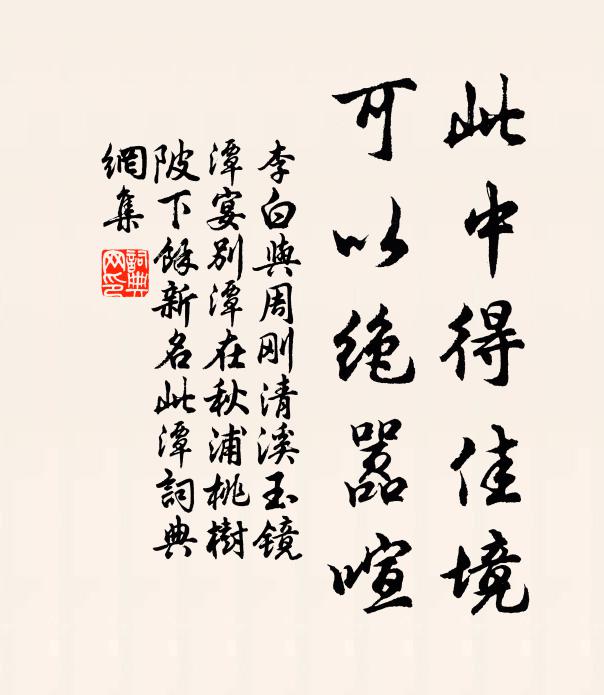 此中得佳境
可以绝嚣喧
李白與周刚清溪玉镜
潭宴别潭在秋浦桃樹
陂下馀新名此潭詞典
網集
詞典
网印